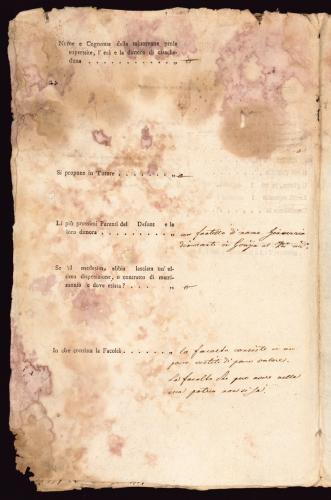 Nome e Cognome della minorenne prole
superstite, l'età e la dimora di ciasche-
duna . . . . . . . . . . . . „ o
Si propone in Tutore . . . . . . . „
Li più prossimi Parenti del Defont e la
loro dimora . . . . . . . . . . . „ un fratello d'nome
dimorante in
Se il medesimo abbia lasciata un' ul-
tima disposizione, o contratto di matri-
monio e dove esista? . . . . . . „ o
In che consista la Facoltà . . . . . . . „ la facoltà consiste in un
paro vestiti di poco valore.
La facoltà che può avere nella
sua patria non si sà.